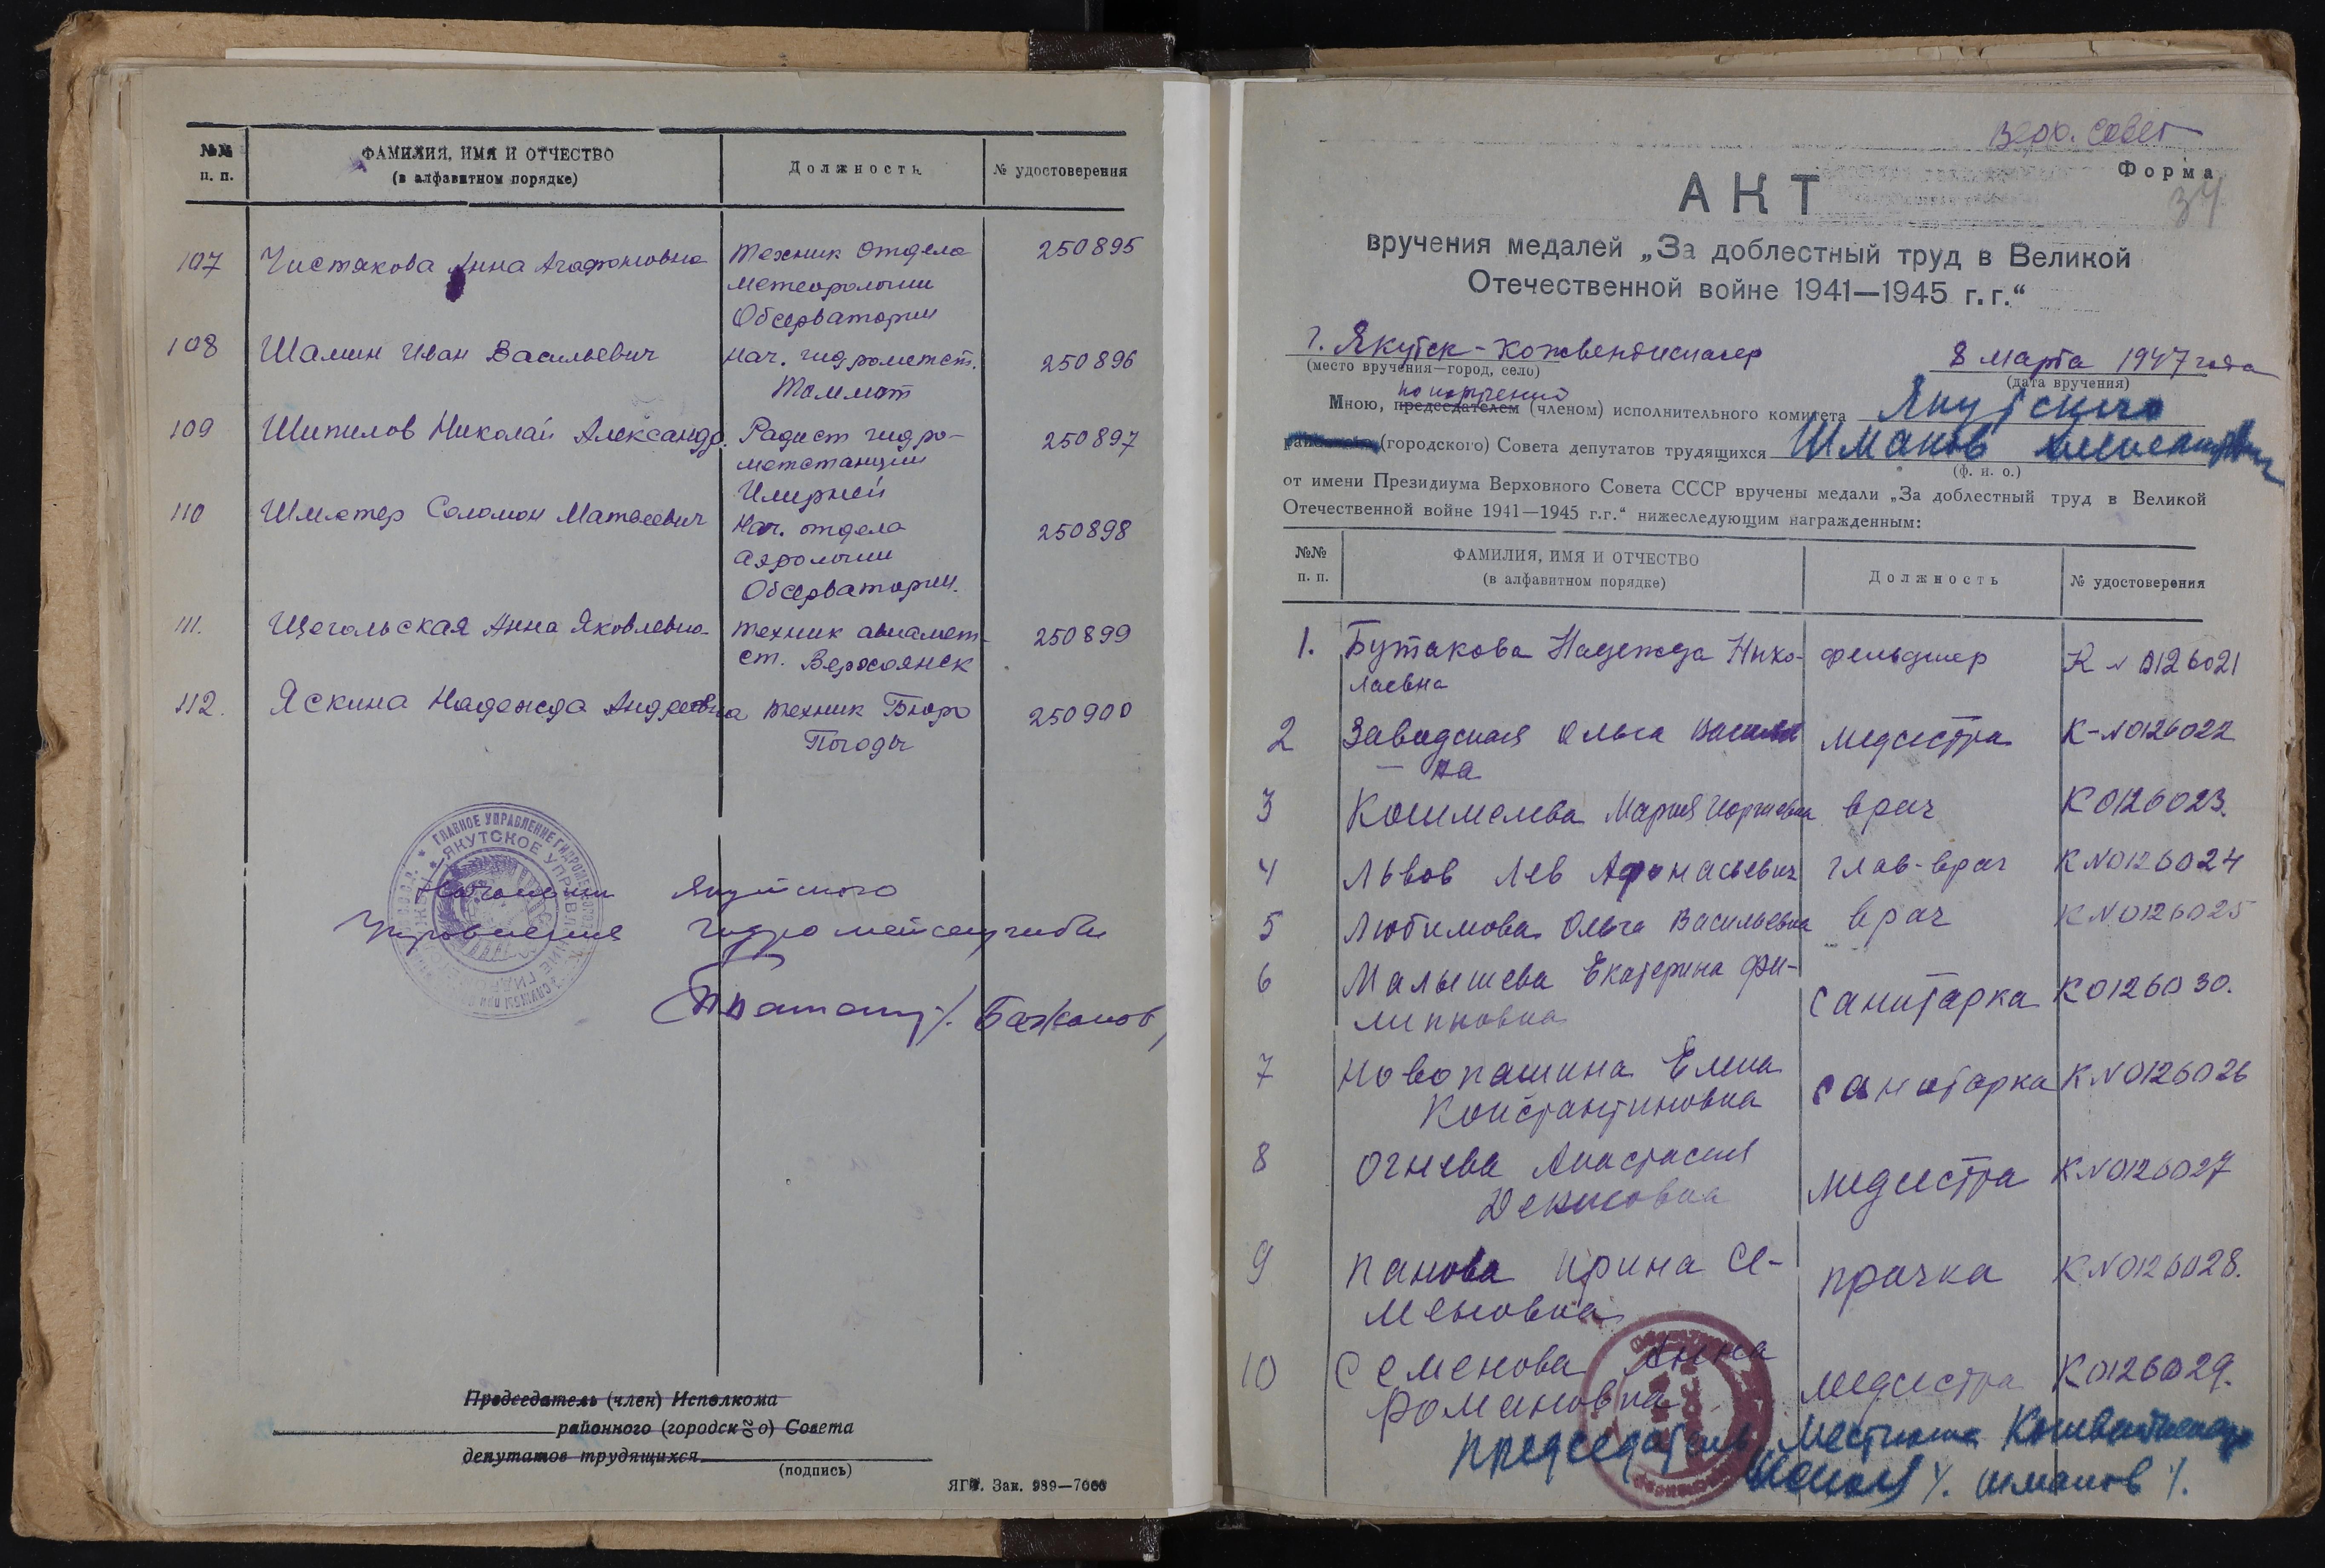 №№ п. п.
ФАМИЛИЯ, ИМЯ И ОТЧЕСТВО
(в алфавитном порядке)
Должность
№ удостоверения
107 Чистякова Анна Агафоновна Техник Отдела 250895
Метеорологии
Обсерватории
108 Шамин Иван Васильевич Нач. гидрометст. 250896
Томмот
109 Шипилов Николай Александр. Радист гидро- 250897
метстанции
110 Соломон Матвеевич Нач. отдела 250898
аэрологии
Обсерватории.
111. Щегольская Анна Яковлевна техник авиамет- 250899
ст. Верхоянск
112. Яскина Надежда Андреевна техник Бюро 250900
Погоды
ГЛАВНОЕ УПРАВЛЕНИЕ
ЯКУТСКОЕ УПРАВЛЕНИЕ
Начальник Якутского
Управления Гидрометслужбы
/ Бажанов /
Председатель (член) Исполкома
районного (городского) Совета
депутатов трудящихся
(подпись)
ЯГТ. Зак. 989—7000
Верх. Совет
Форма
34
АКТ
вручения медалей „За доблестный труд в Великой
Отечественной войне 1941—1945 г.г.“
г. Якутск - Кожвендиспансер 8 марта 1947 года
(место вручения—город, село) (дата вручения)
по поручению
Мною, председателем (членом) исполнительного комитета Якутского
(городского) Совета депутатов трудящихся Шманов
(ф. и. о.)
от имени Президиума Верховного Совета СССР вручены медали „За доблестный труд в Великой
Отечественной войне 1941—1945 г.г.“ нижеследующим награжденным:
№№ п. п.
ФАМИЛИЯ, ИМЯ И ОТЧЕСТВО
(в алфавитном порядке)
Должность
№ удостоверения
1. Бутакова Надежда Нико- фельдшер К № 0126021
лаевна
2 Заводская Ольга медсестра К-№0126022
на
3 Мария врач К 0126023.
4 Львов Лев Афонасьевич глав-врач К№0126024
5 Любимова Ольга Васильевна врач К№0126025
6 Малышева Екатерина Фи- санитарка К0126030.
липповна
7 Новопашина Елена санитарка К№0126026
Константиновна
8 Огнева Анастасия медсестра К№0126027
Денисовна
9 Панова Ирина Се- прачка К№0126028.
меновна
10 Семенова Анна медсестра К0126029.
Романовна
Председатель Месткома
/. Шманов /.